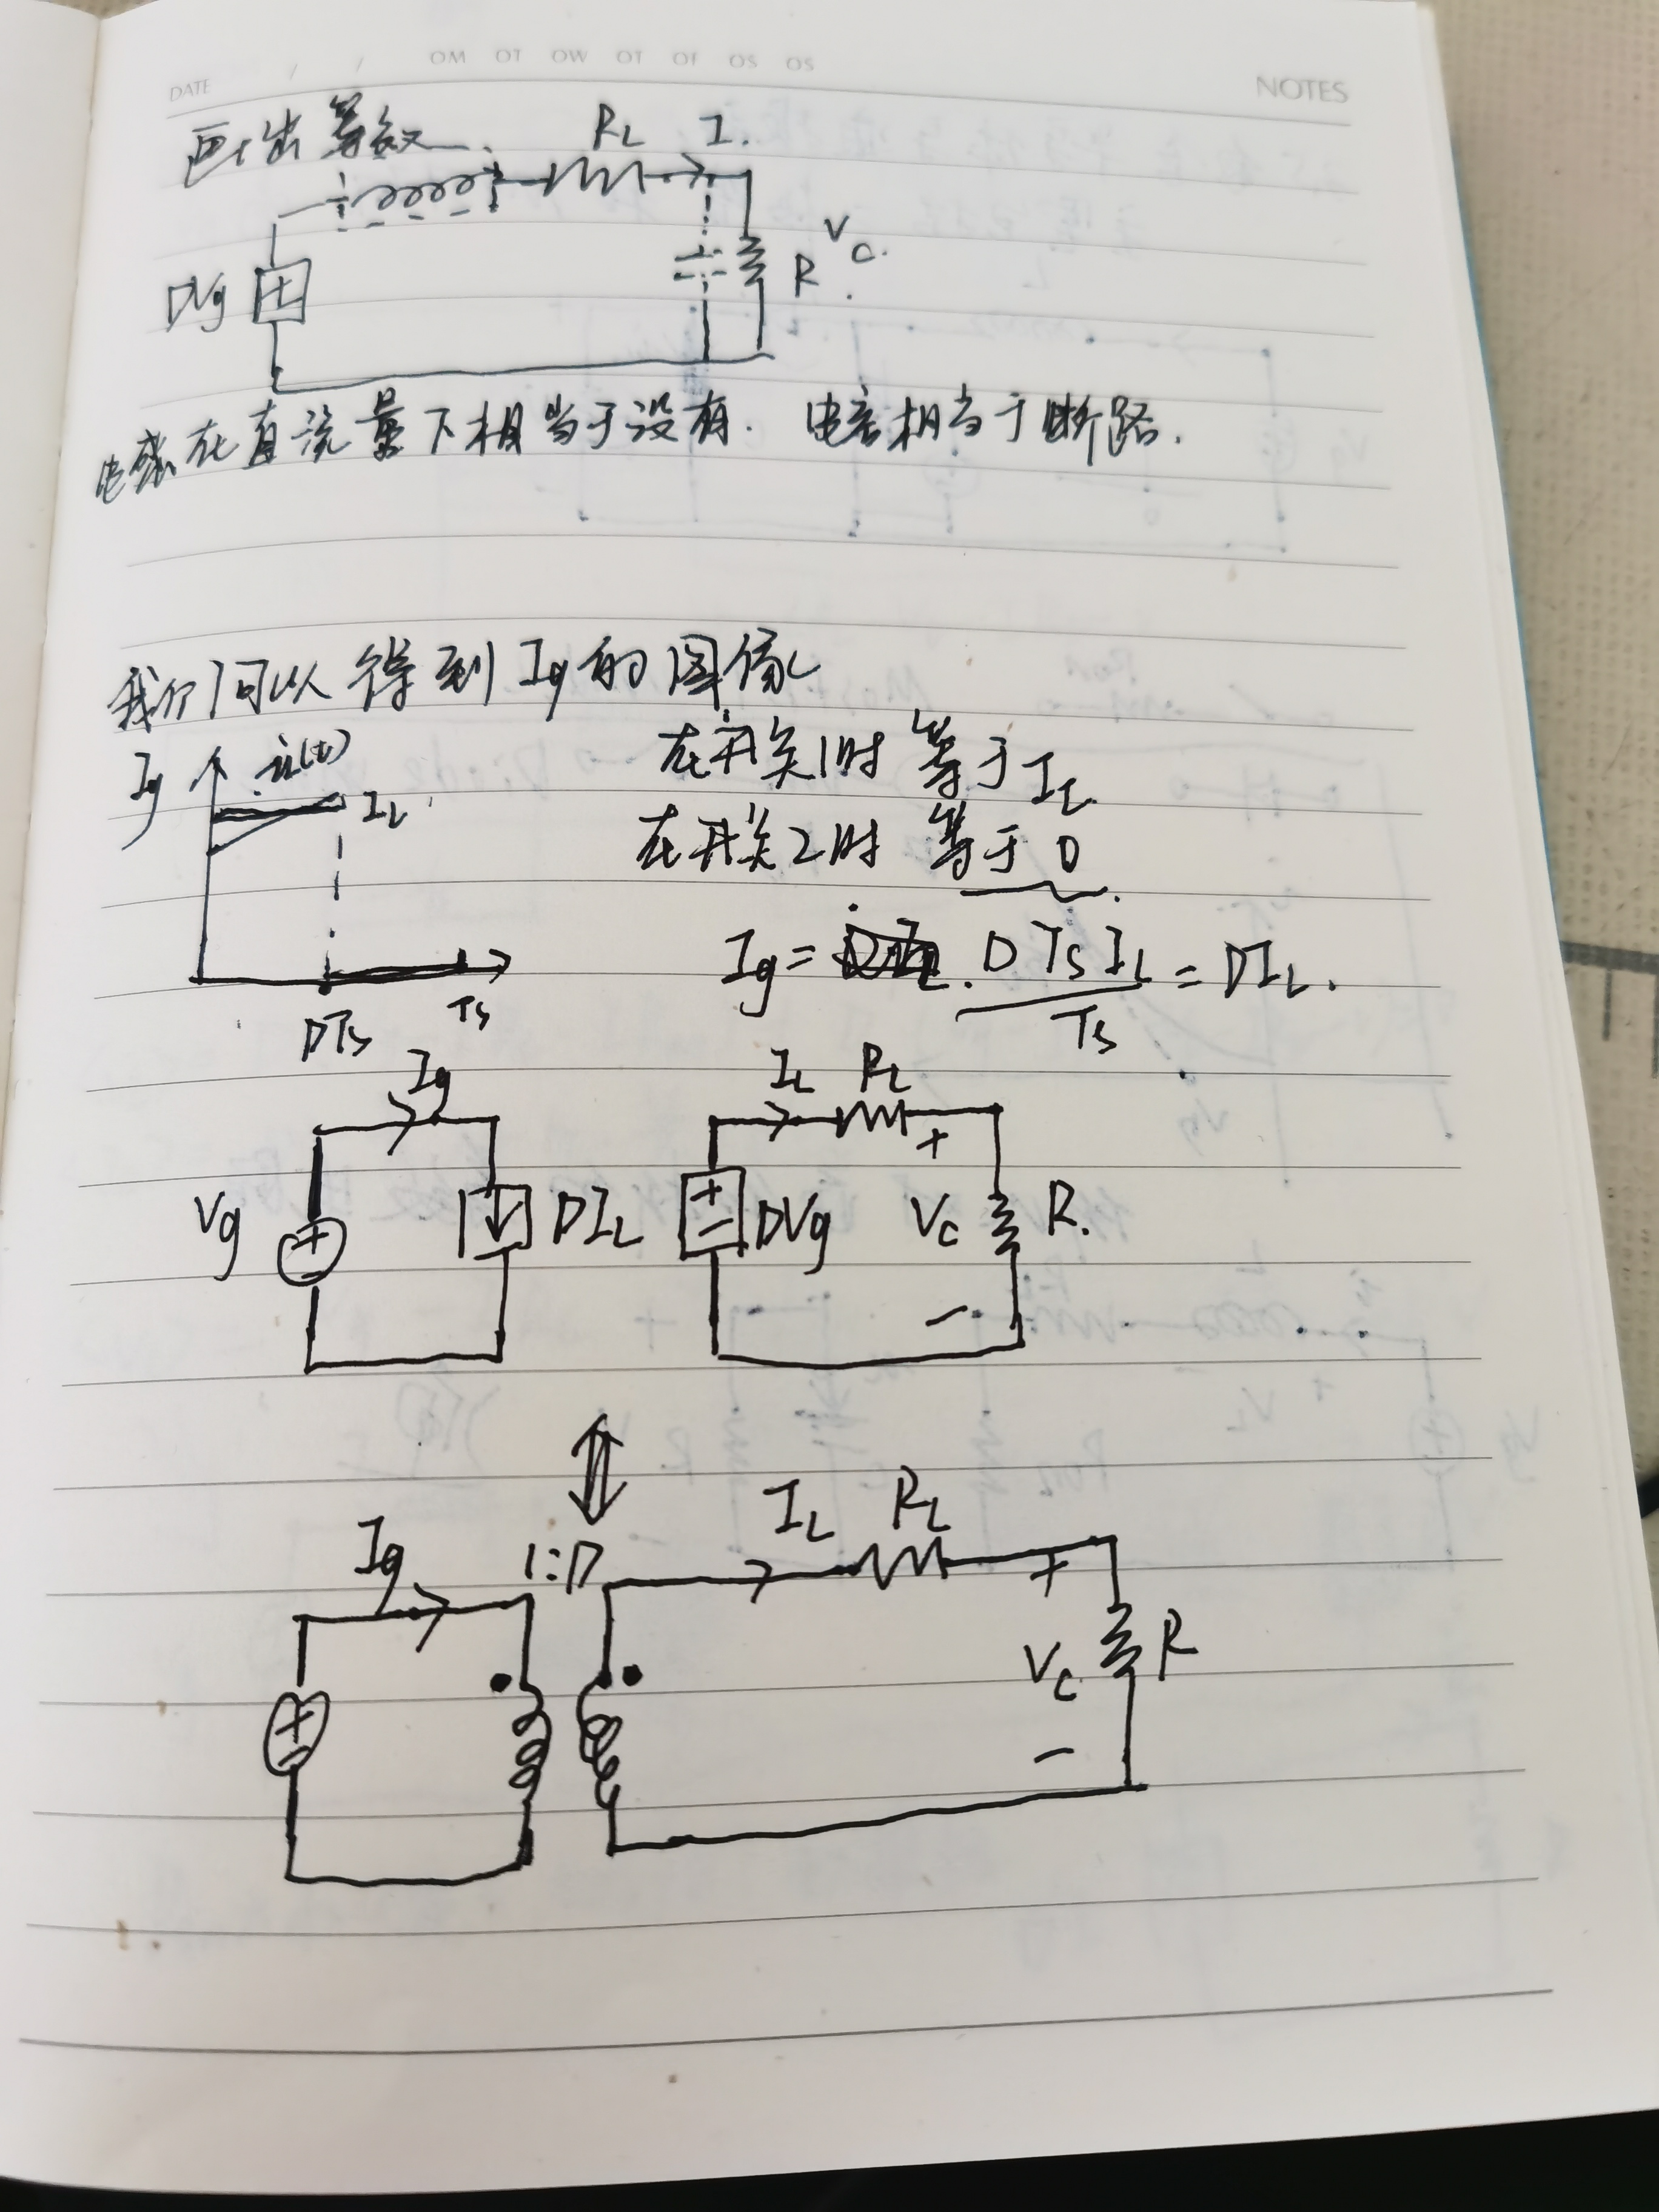 DATE / / OM OT OW OT OF OS OS NOTES
画出等效
RL I.
DVg + R Vc.
电感在直流量下相当于没有. 电容相当于断路.
我们可以得到Ig的图像
Ig iL(t) IL
在开关1时 等于IL
在开关2时 等于0
Ig = DTsIL/Ts = DIL.
DTs Ts
Ig IL RL
Vg + - DIL + - DVg + Vc - R.
Ig 1:D IL RL
+ - + Vc - R